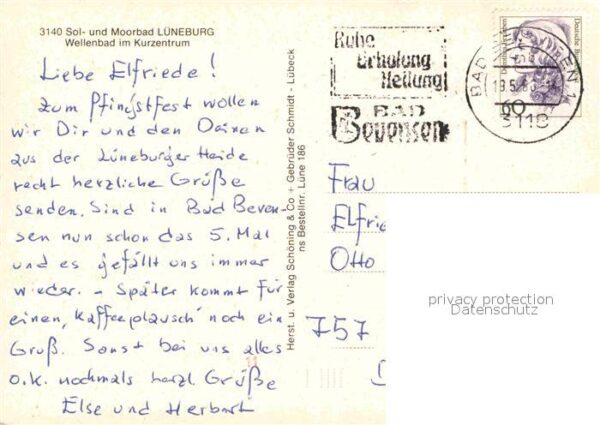 3140 Sol- und Moorbad LÜNEBURG
Wellenbad im Kurzentrum
Liebe Elfriede!
Zum Pfingstfest wollen
wir Dir und den Deinen
aus der Lüneburger Heide
recht herzliche Grüße
senden. Sind in Bad Beven-
sen nun schon das 5. Mal
und es gefällt uns immer
wieder. – Später kommt für
einen „Kaffeeplausch" noch ein
Gruß. Sonst bei uns alles
o.k. nochmals herzl. Grüße
Else und Herbert
Herst. u. Verlag Schöning & Co + Gebrüder Schmidt - Lübeck
ns Bestellnr. Lüne 186
Ruhe
Erholung
Heilung
BAD
Bevensen
BAD
3118
60
Deutsche
Frau
Elfrie
Otto
757
privacy protection
Datenschutz